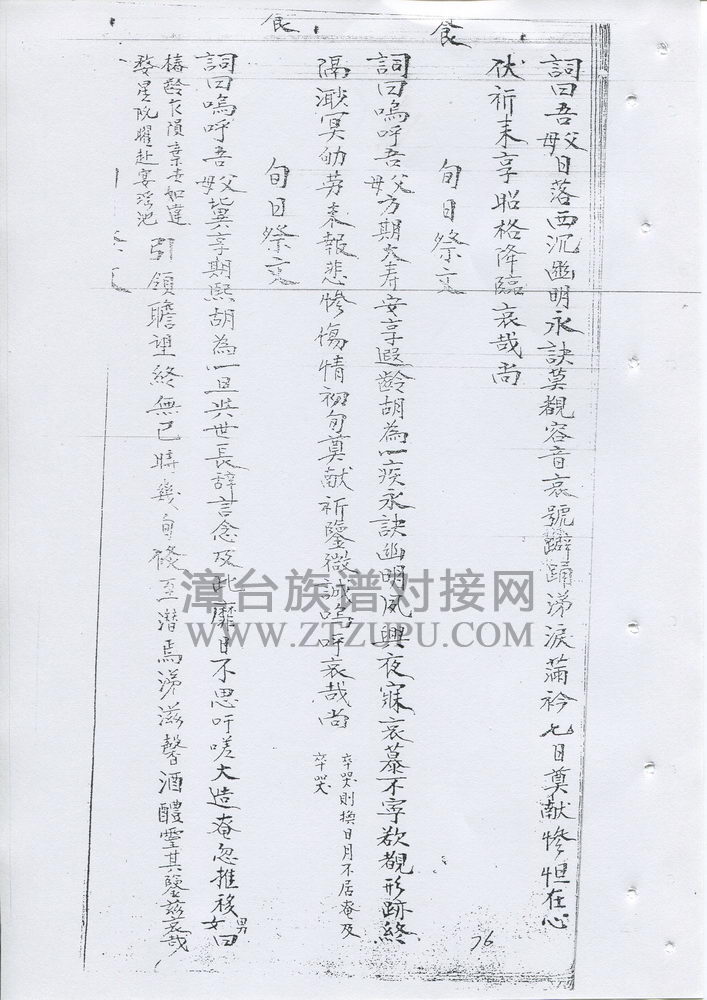 食
食
詞曰吾父母日落西沉幽明永訣莫覩容音哀號躃踊涕淚蒲衿七日奠献惨怛在心
伏祈来享昭格降臨哀哉尚
旬日祭文
詞曰嗚呼吾父母方期大寿安享遐齡胡為一疾永訣幽明夙興夜寐哀慕不寧欲覩形跡終
隔渺冥劬劳未報悲惨傷情初旬奠献祈鑒微誠嗚呼哀哉尚
卒哭則換日月不居奄及
卒哭
旬日祭文
詞曰嗚呼吾父母冀享期熙胡為一旦与世長辞言念及此靡日不思吁嗟大造奄忽推移男女曰
椿龄忽隕棄去如遺
婺星沉曜赴宴瑶池
引領瞻望終無已時幾旬後至潜焉涕滋馨酒醴靈其鑒兹哀哉
76
漳台族谱对接网
WWW.ZTZUPU.COM